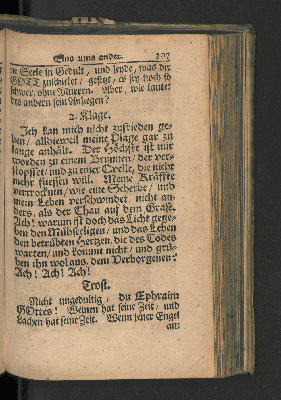 Eins ums ander. 207
ne Seele in Gedult, und leyde, was dir
GOTT zuschicket / gesetzt / es sey noch so
schwer, ohne Murren. Aber, wie lautet
des andern sein Anliegen?
2. Klage.
Ich kan mich nicht zufrieden ge-
ben / alldieweil meine Plage gar zu
lange anhält. Der Höchste ist mir
worden zu einem Brunnen / der ver-
stopffet / und zu einer Qvelle, die nicht
mehr fliessen will. Meine Kräffte
vertrocknen / wie eine Scherbe / und
mein Leben verschwindet nicht an-
ders, als der Thau auf dem Grase.
Ach! warum ist doch das Licht gege-
ben den Mühseeligen / und das Leben
den betrübten Hertzen, die des Todes
warten / und kommt nicht / und grü-
ben ihn wol aus, dem Verborgenen?
Ach! Ach! Ach!
Trost.
Nicht ungedultig / du Ephraim
GOttes! Weinen hat seine Zeit / und
Lachen hat seine Zeit. Wenn jener Engel
am